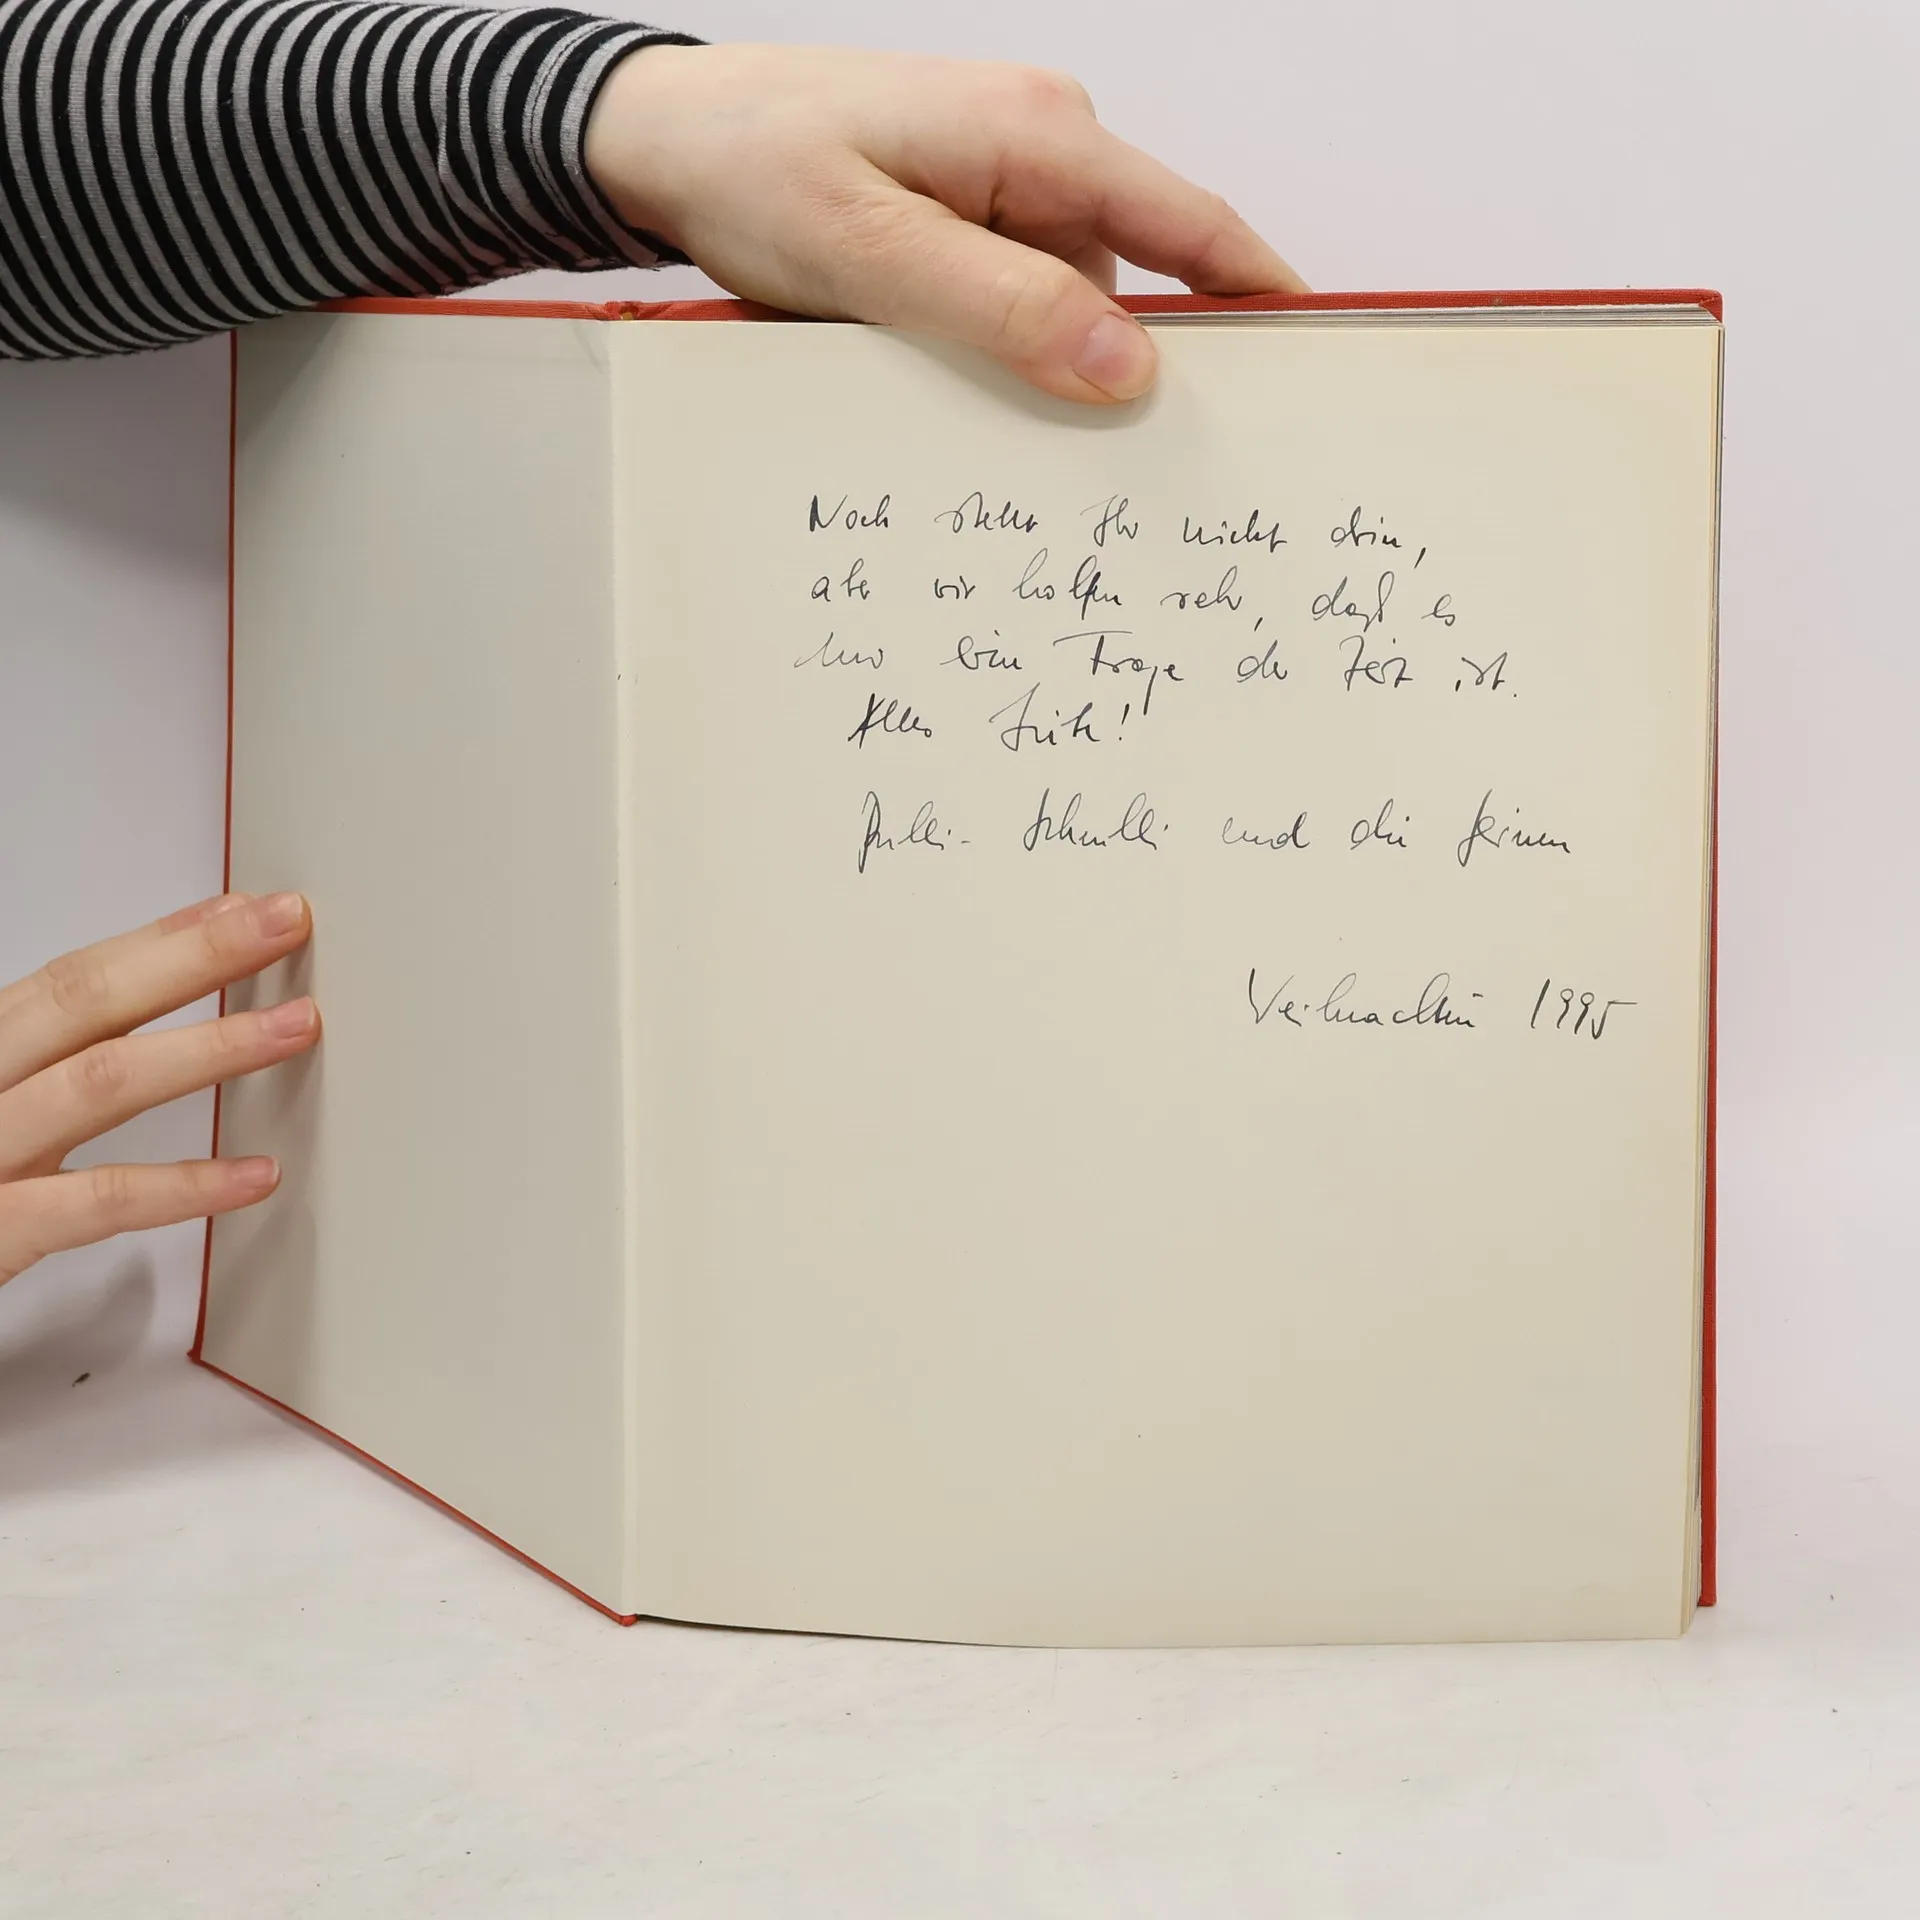 Noch steht Ihr nicht drin,
aber wir hoffen sehr, daß es
nur eine Frage der Zeit ist.
Alles Gute!
Schulli und die
Weihnachten 1995